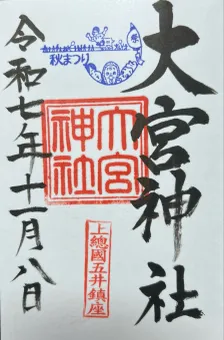 大宮神社
秋まつり
大宮
神社
上總國五井鎮座
令和七年十一月八日